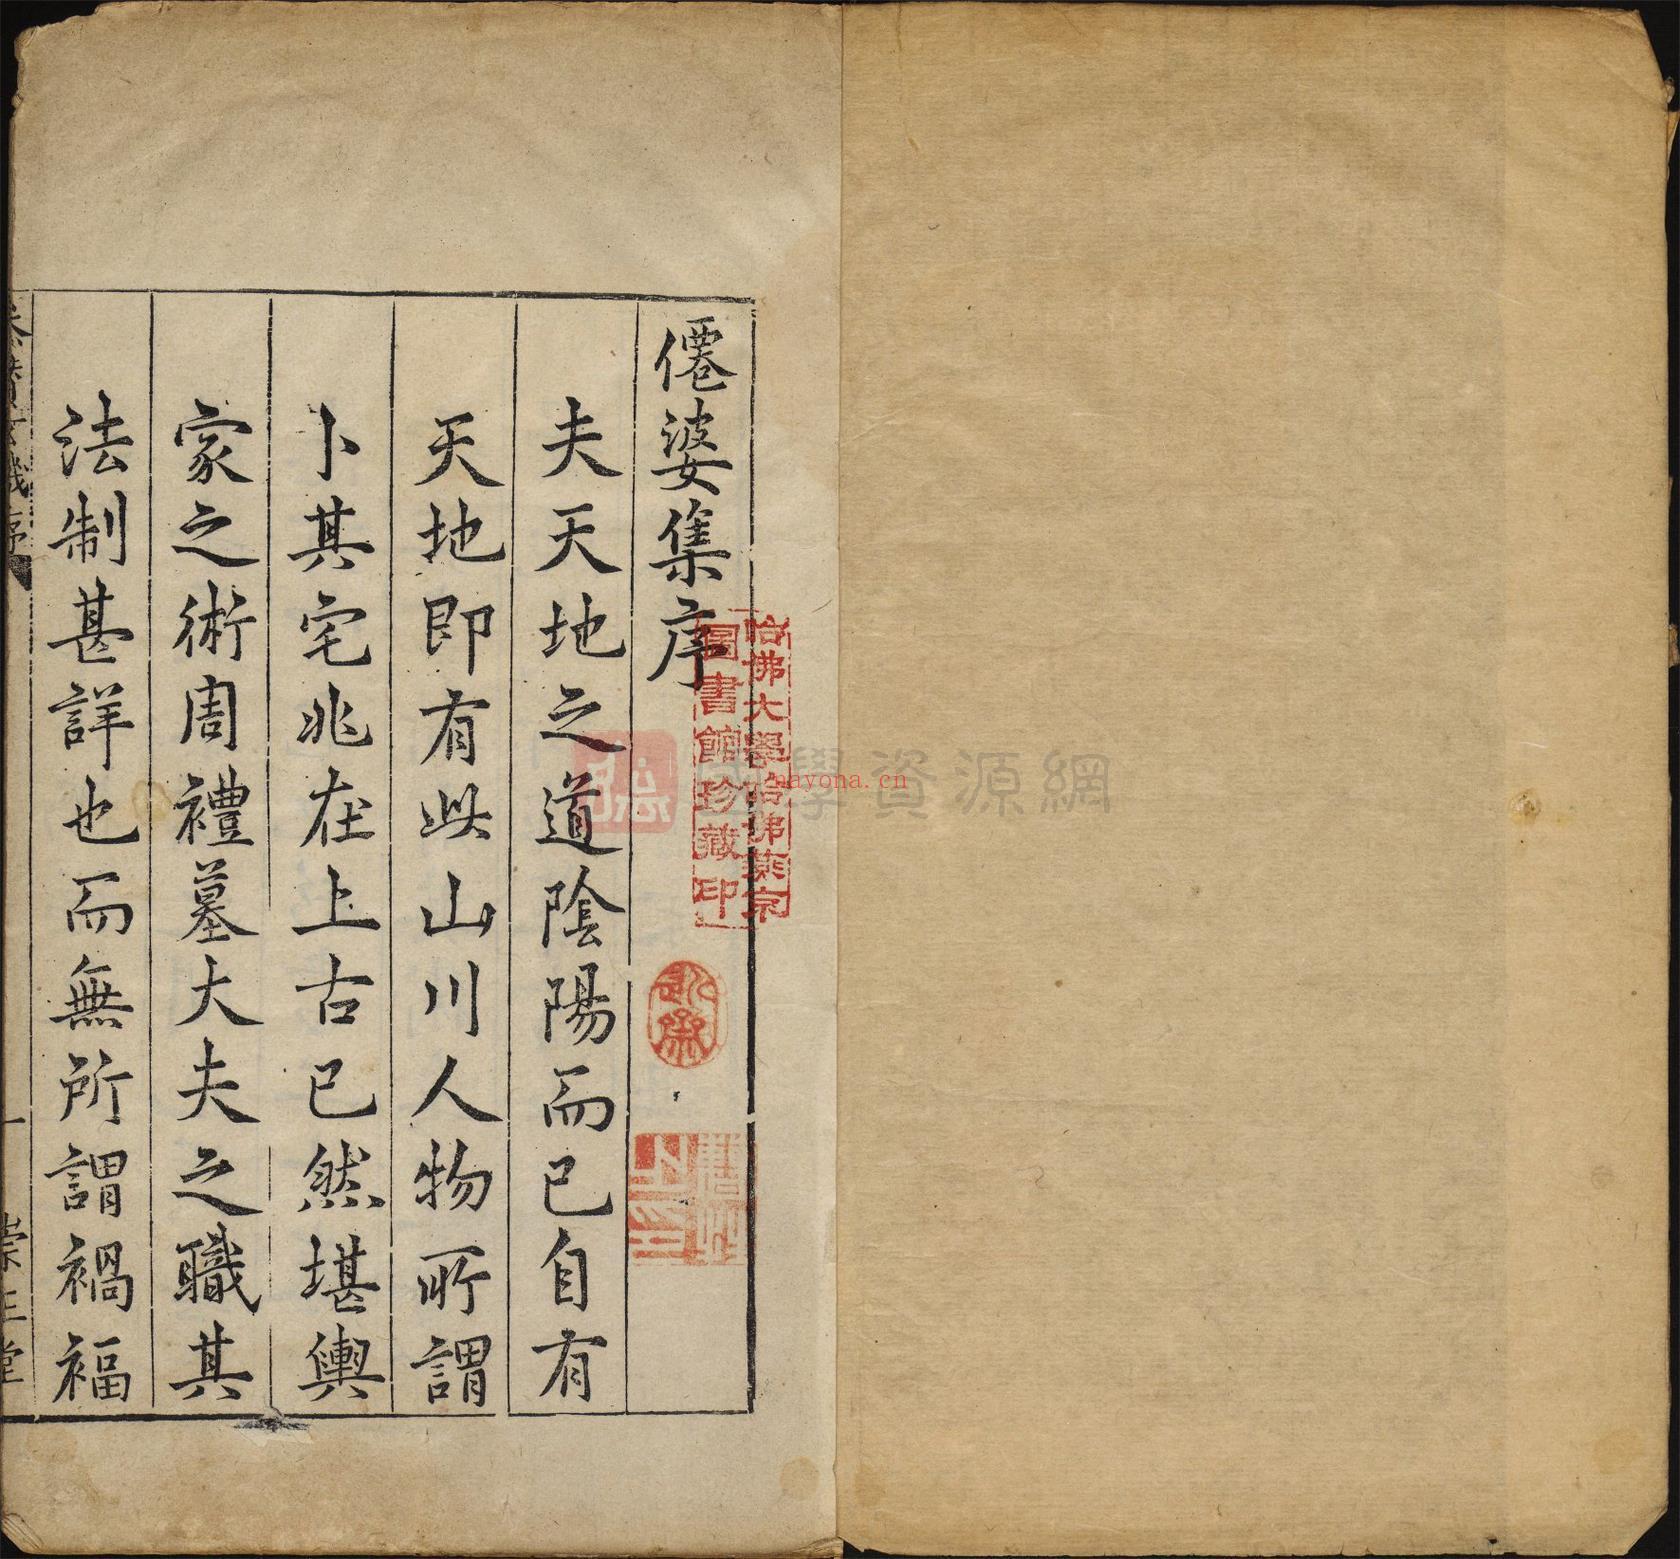 僊婆集序
夫天地之道陰陽而已自有
天地即有此山川人物所謂
卜其宅兆在上古已然堪輿
家之術周禮墓大夫之職其
法制甚詳也而無所謂禍福
一
崇正堂
哈佛大學哈佛燕京
圖書館珍藏印
國學資源網
nayona.cn